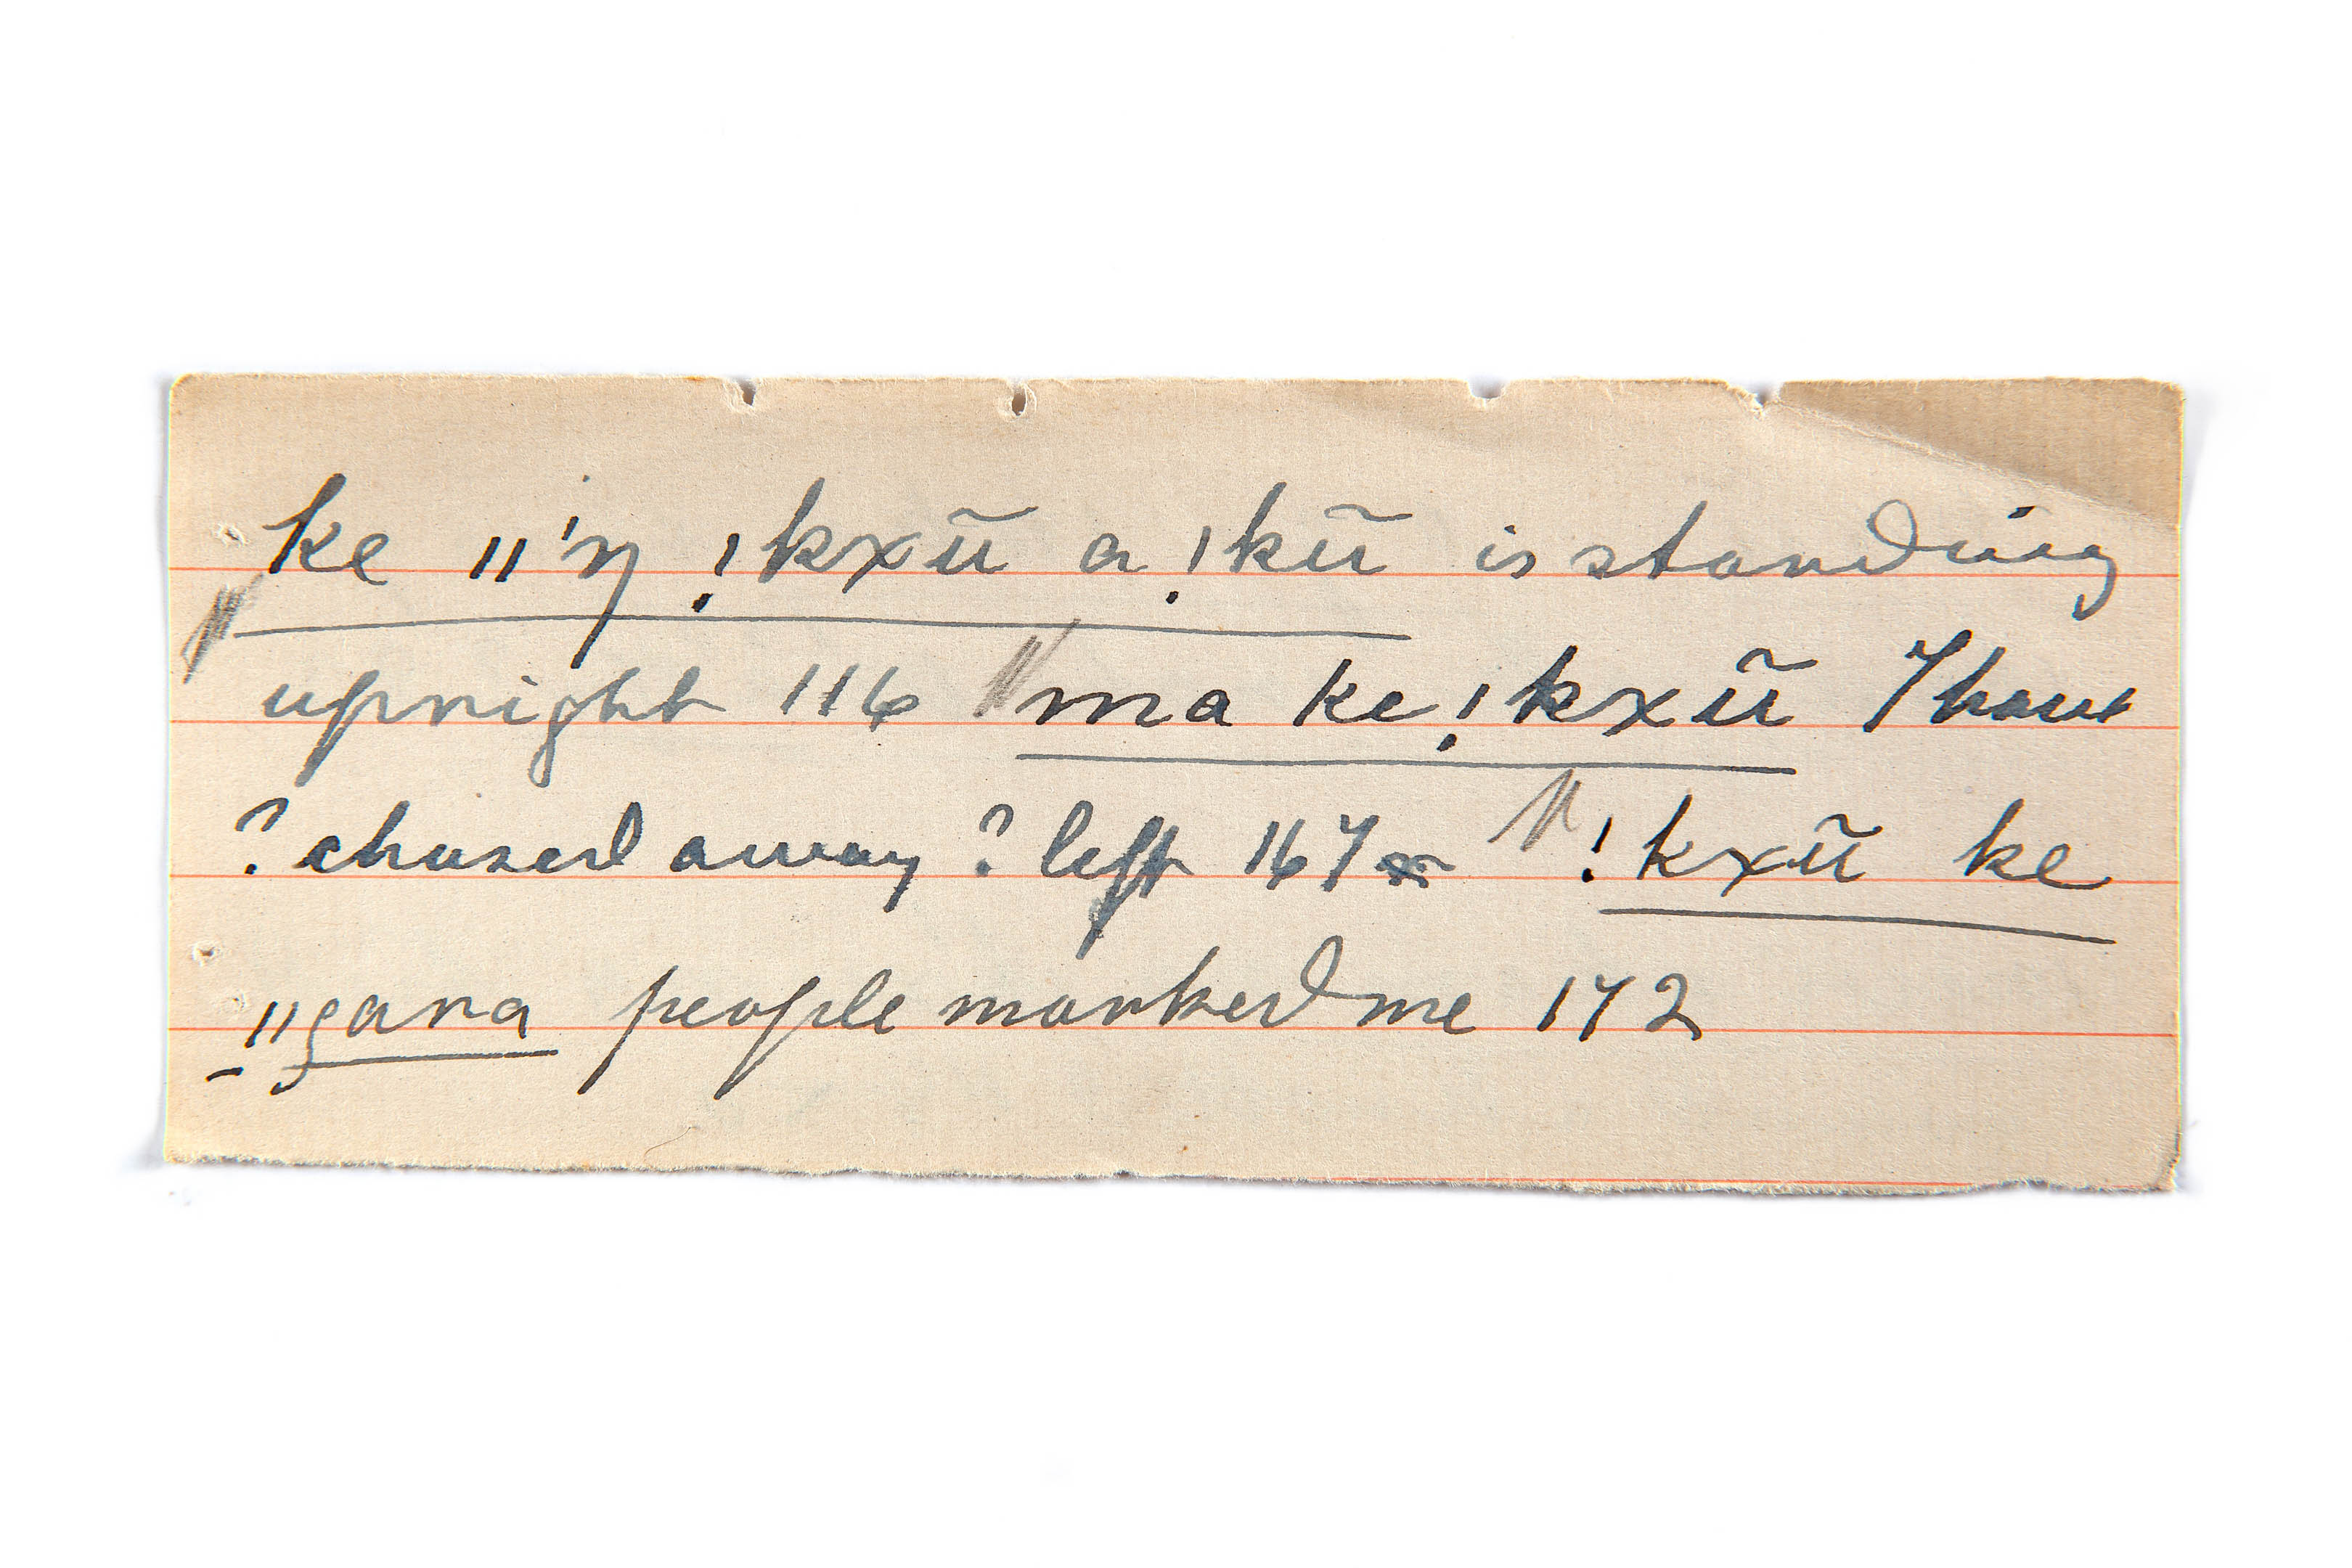 ke ǁ'ŋ !kxũ a !kũ is standing
upright 116 ma ke !kxũ I have
? chased away ? left 167 !kxũ ke
ǁgara people marked me 172